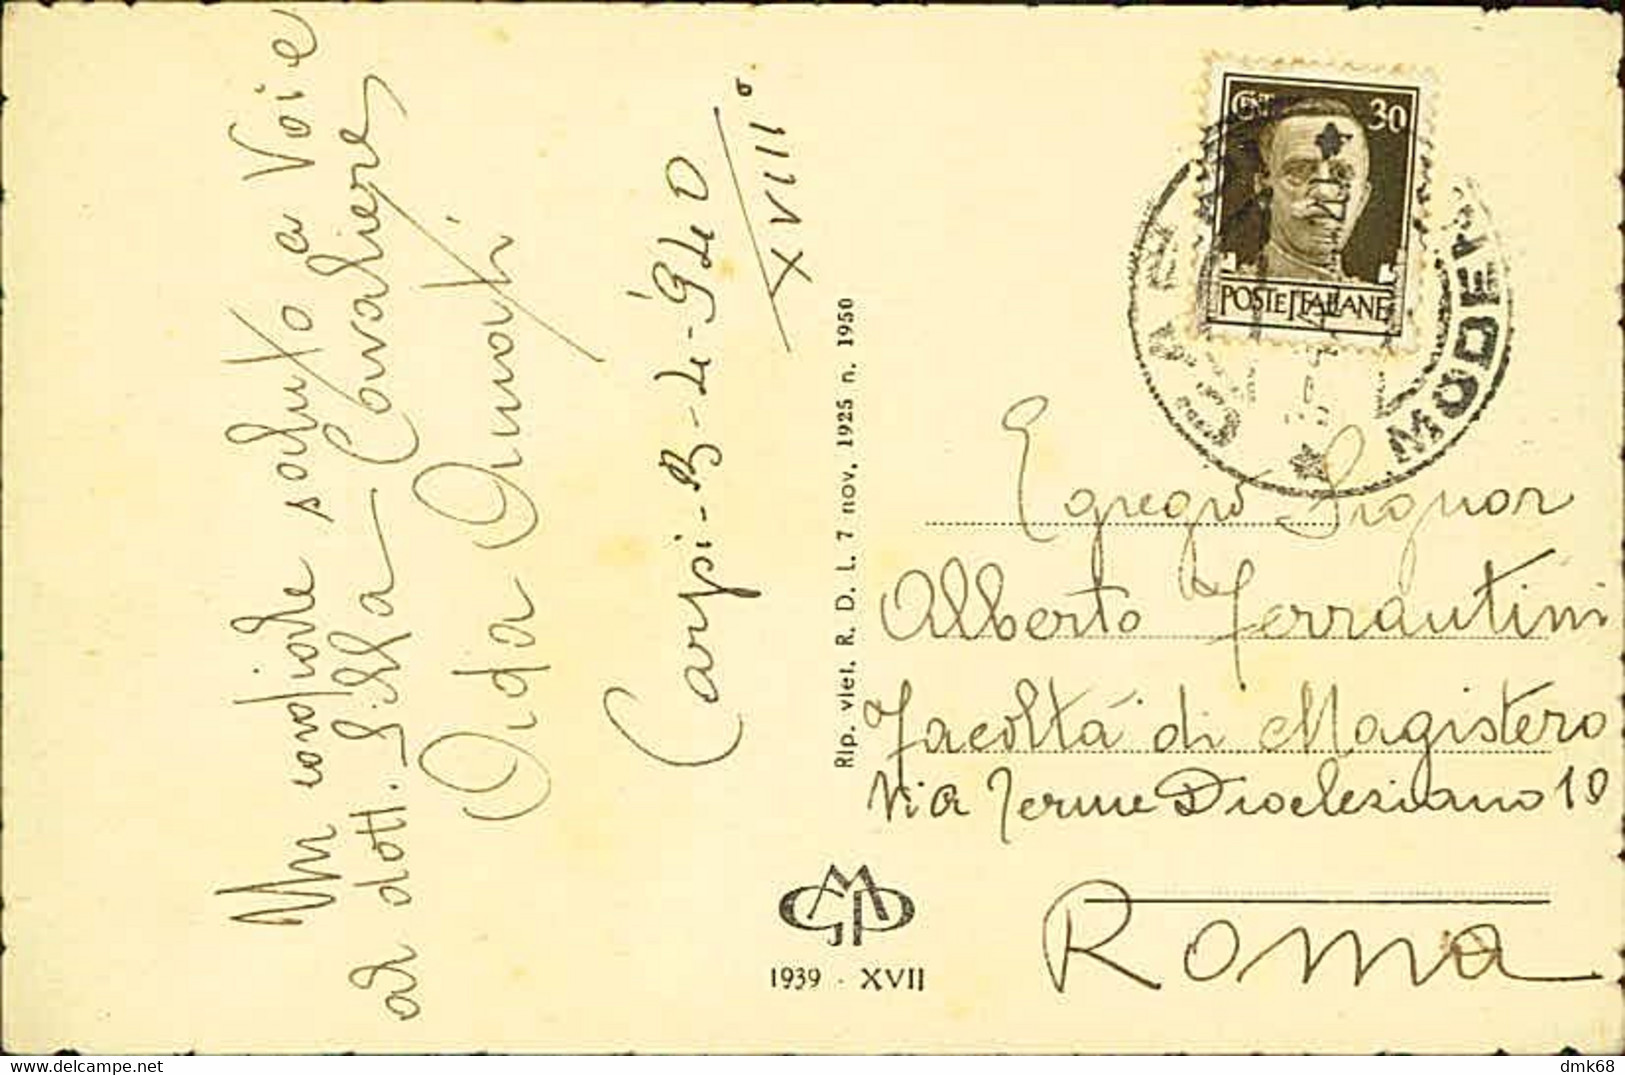 Un cordiale saluto a Voi e
ad dott. Silla Cavaliere,
Aida
Carpi - B - 4 - 940
XVIII°.
Rip. viet. R. D. L. 7 nov. 1925 n. 1950
CENT 30
POSTE ITALIANE
CARPI
MODENA
Egregio Signor
Alberto Ferrantini
Facoltà di Magistero
Via Terme Diocleziano 10
Roma
GMP
1939 - XVII
dmk68